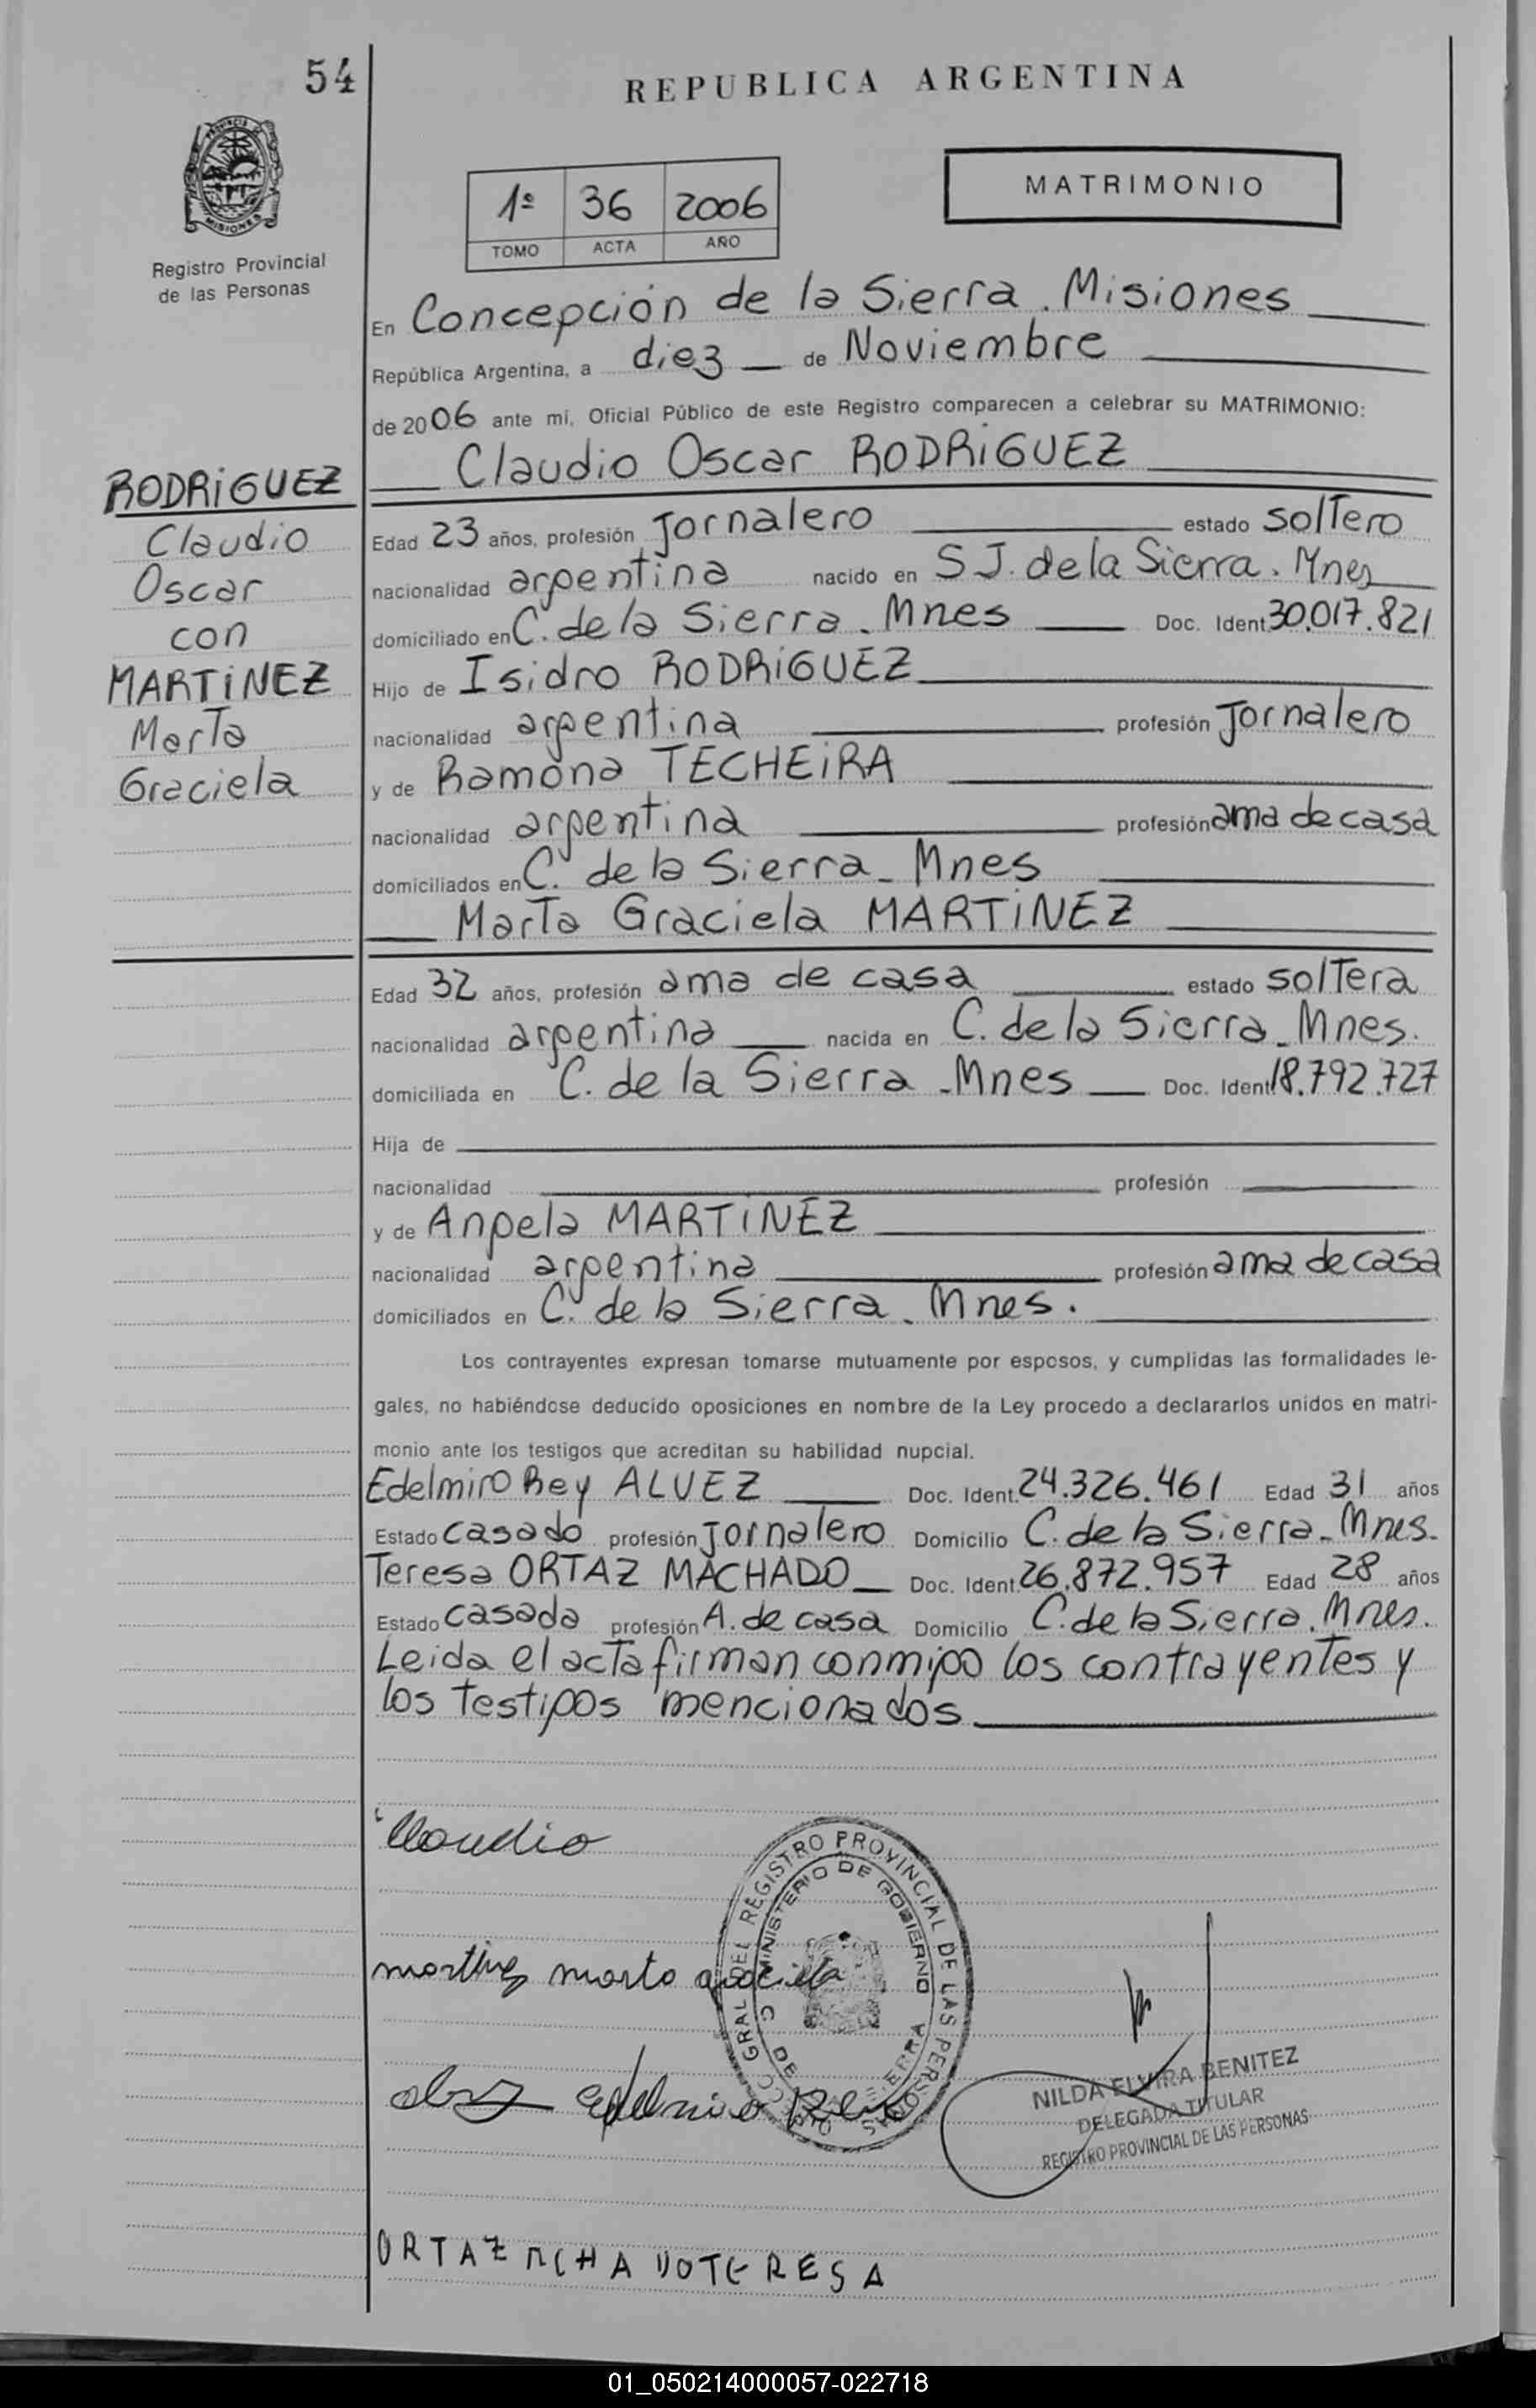 54
REPUBLICA ARGENTINA
MATRIMONIO
1º 36 2006
TOMO ACTA AÑO
PROVINCIA DE MISIONES
Registro Provincial
de las Personas
En Concepción de la Sierra. Misiones
República Argentina, a diez de Noviembre
de 2006 ante mi, Oficial Público de este Registro comparecen a celebrar su MATRIMONIO:
Claudio Oscar RODRiGUEZ
RODRiGUEZ
Claudio
Oscar
con
MARTiNEZ
Marta
Graciela
Edad 23 años, profesión Jornalero estado solTero
nacionalidad argentina nacido en S J. de la Sierra. Mnes
domiciliado en C. de la Sierra. Mnes Doc. Ident. 30.017.821
Hijo de Isidro RODRiGUEZ
nacionalidad argentina profesión Jornalero
y de Ramona TECHEiRA
nacionalidad argentina profesión ama de casa
domiciliados en C. de la Sierra_ Mnes
Marta Graciela MARTiNEZ
Edad 32 años, profesión ama de casa estado solTera
nacionalidad argentina nacida en C. de la Sierra_ Mnes.
domiciliada en C. de la Sierra -Mnes Doc. Ident. 18.792.727
Hija de
nacionalidad profesión
y de Angela MARTiNEZ
nacionalidad argentina profesión ama de casa
domiciliados en C. de la Sierra. Mnes.
Los contrayentes expresan tomarse mutuamente por esposos, y cumplidas las formalidades le-
gales, no habiéndose deducido oposiciones en nombre de la Ley procedo a declararlos unidos en matri-
monio ante los testigos que acreditan su habilidad nupcial.
Edelmiro Rey ALVEZ Doc. Ident. 24.326.461 Edad 31 años
Estado casado profesión Jornalero Domicilio C. de la Sierra_Mnes.
Teresa ORTAZ MACHADO Doc. Ident. 26.872.957 Edad 28 años
Estado casada profesión A. de casa Domicilio C. de la Sierra. Mnes.
Leida el acta firman conmigo los contrayentes y
los testigos mencionados
Claudio
martinez marta graciela
GRAL DEL REGISTRO PROVINCIAL DE LAS PERSONAS
MINISTERIO DE GOBIERNO
edelmiro Rey
NILDA ELVIRA BENITEZ
DELEGADA TITULAR
REGISTRO PROVINCIAL DE LAS PERSONAS
ORTAZ MCHADOTERESA
01_050214000057-022718